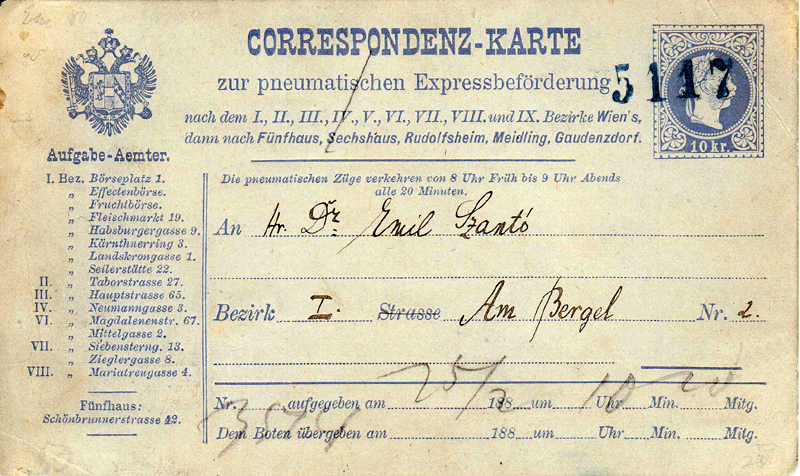 CORRESPONDENZ-KARTE
zur pneumatischen Expressbeförderung
5117
nach dem I., II., III., IV., V., VI., VII., VIII. und IX. Bezirke Wien's,
dann nach Fünfhaus, Sechshaus, Rudolfsheim, Meidling, Gaudenzdorf.
10 kr.
Aufgabe-Aemter.
I. Bez. Börseplatz 1.
„ Effectenbörse.
„ Fruchtbörse.
„ Fleischmarkt 19.
„ Habsburgergasse 9.
„ Kärnthnerring 3.
„ Landskrongasse 1.
„ Seilerstätte 22.
II. „ Taborstrasse 27.
III. „ Hauptstrasse 65.
IV. „ Neumanngasse 3.
VI. „ Magdalenenstr. 67.
„ Mittelgasse 2.
VII. „ Siebensterng. 13.
„ Zieglergasse 8.
VIII. „ Mariatreugasse 4.
Fünfhaus:
Schönbrunnerstrasse 42.
Die pneumatischen Züge verkehren von 8 Uhr Früh bis 9 Uhr Abends
alle 20 Minuten.
An Hr. Dr. Emil Szántó
Bezirk I. Strasse Am Bergel Nr. 2.
Nr. aufgegeben am 25/2 188 um 10 Uhr 20 Min. Mitg.
Dem Boten übergeben am 188 um Uhr Min. Mitg.